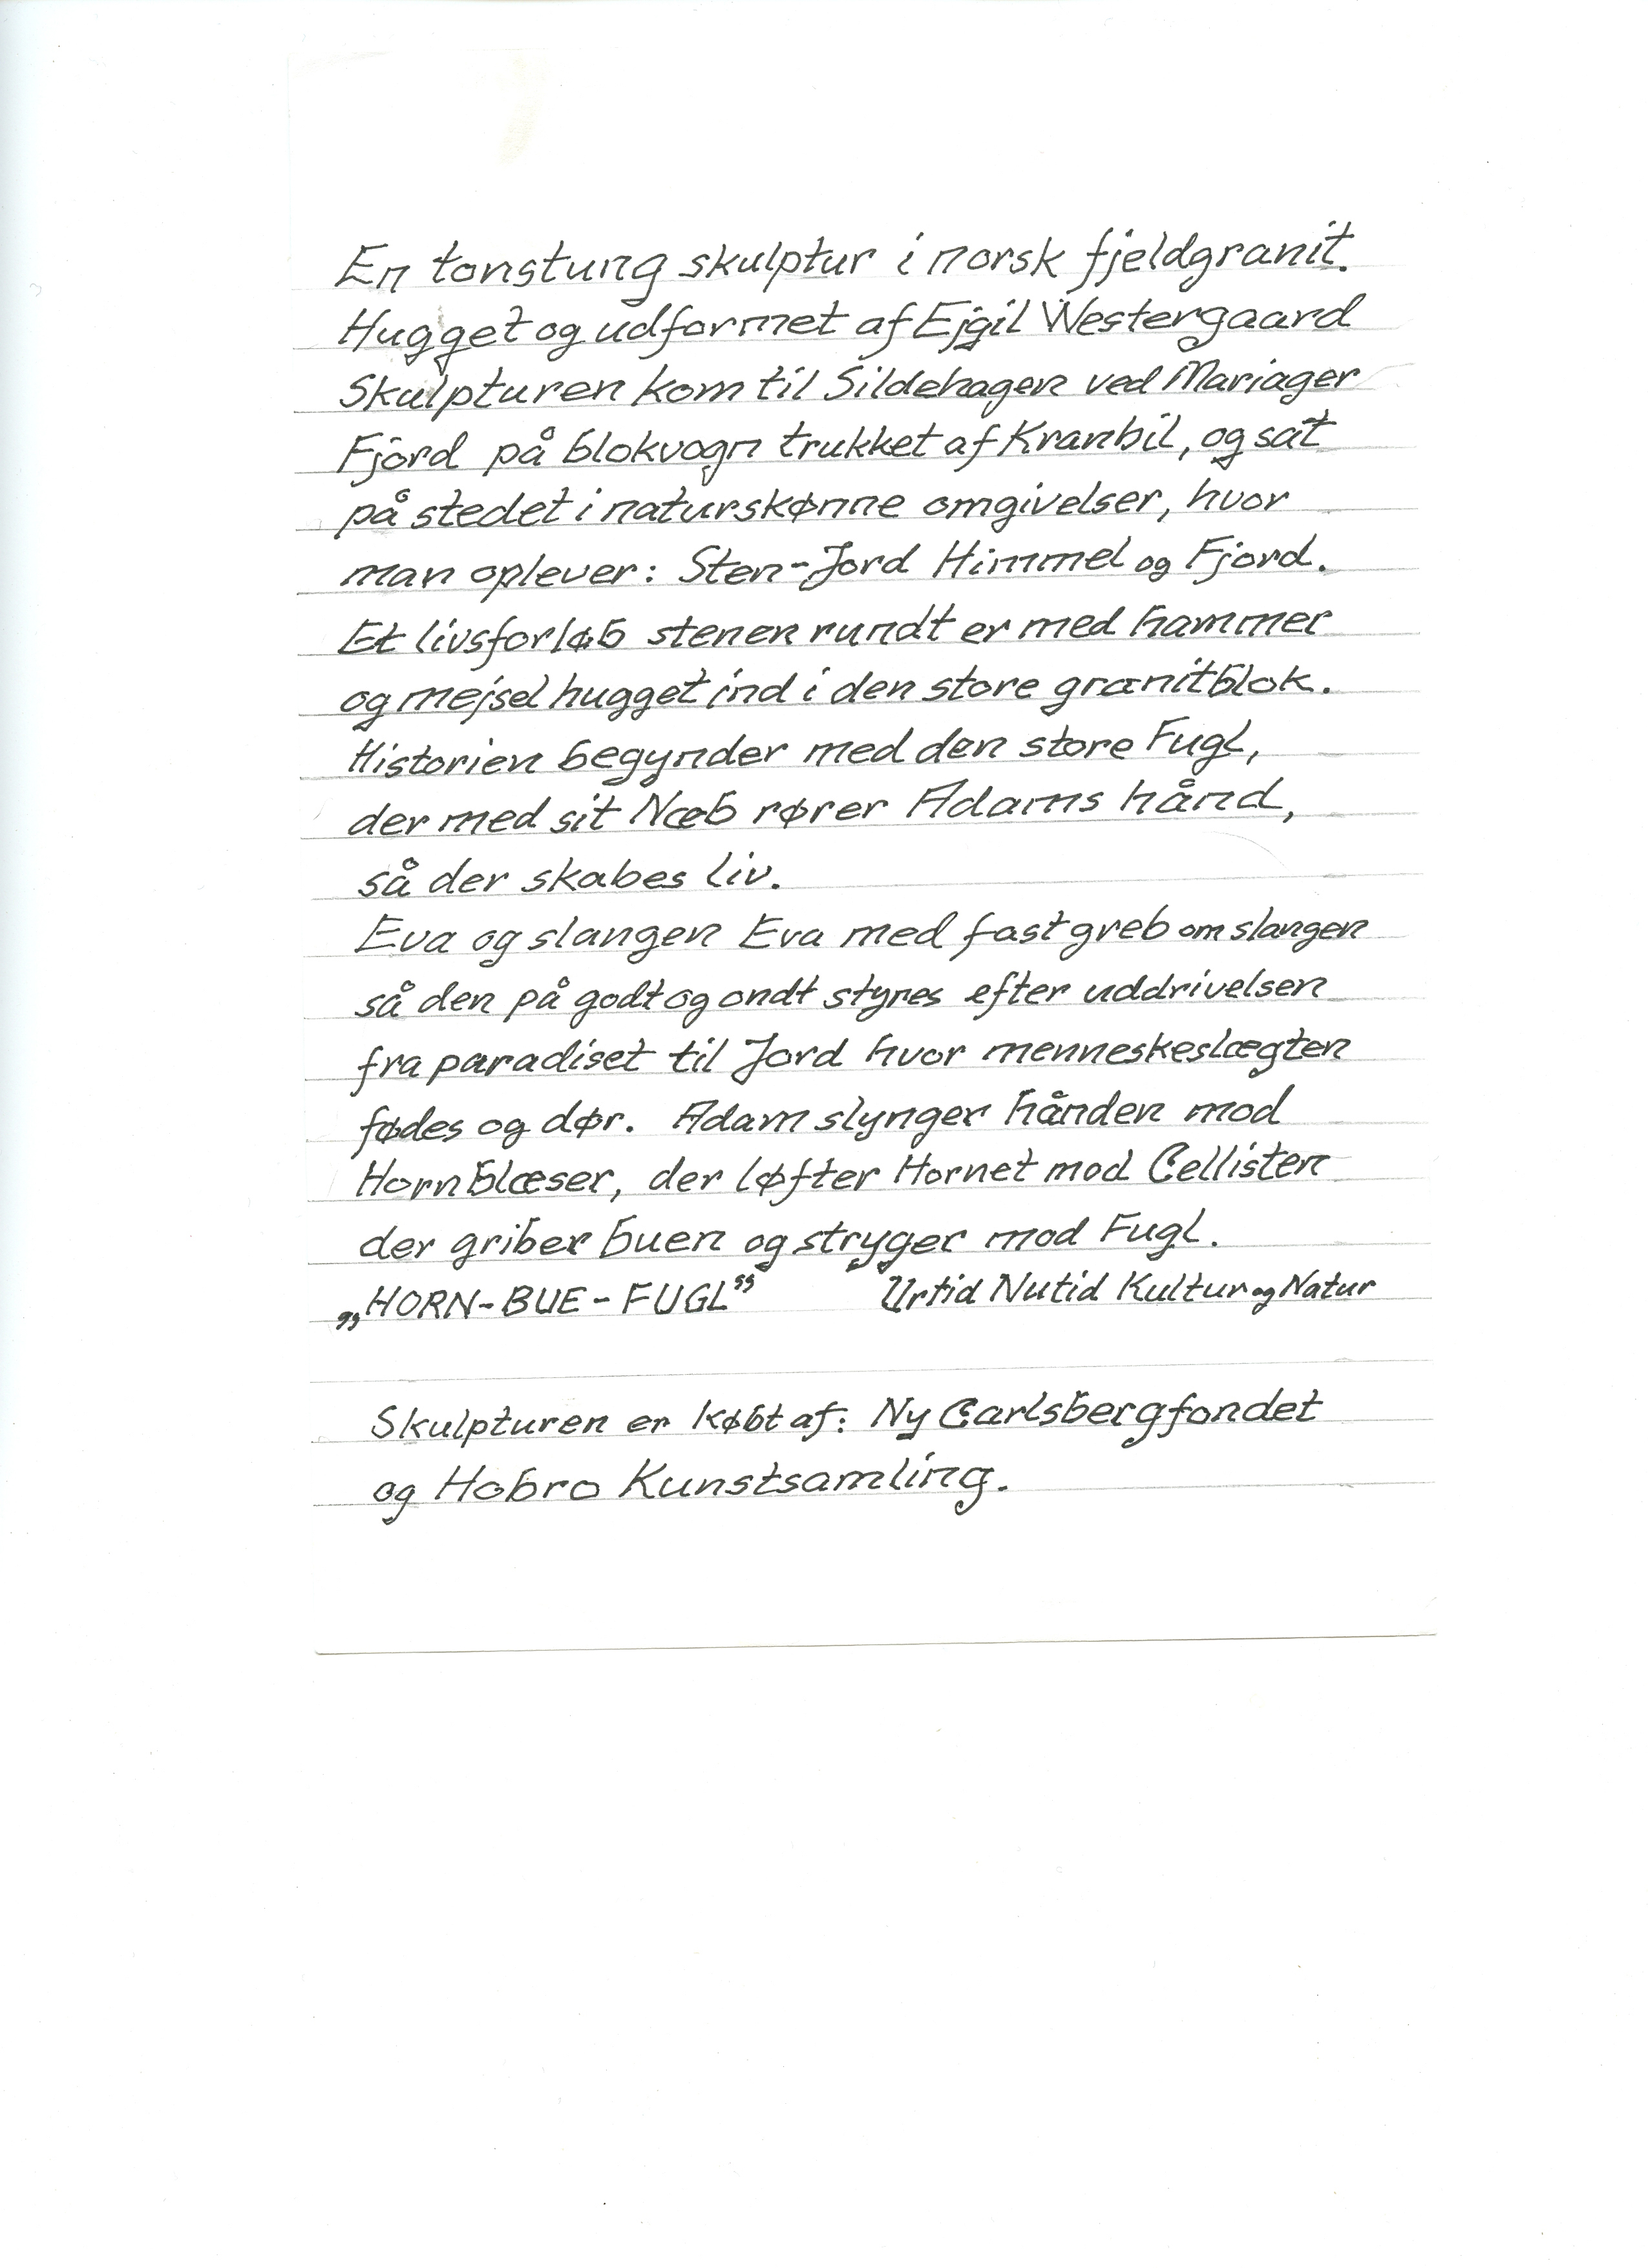 En tonstung skulptur i norsk fjeldgranit.
Hugget og udformet af Ejgil Westergaard
Skulpturen kom til Sildehagen ved Mariager
Fjord på blokvogn trukket af Kranbil, og sat
på stedet i naturskønne omgivelser, hvor
man oplever: Sten-Jord Himmel og Fjord.
Et livsforløb stenen rundt er med hammer
og mejsel hugget ind i den store granitblok.
Historien begynder med den store Fugl,
der med sit Næb rører Adams hånd,
så der skabes liv.
Eva og slangen Eva med fast greb om slangen
så den på godt og ondt styres efter uddrivelsen
fra paradiset til Jord hvor menneskeslægten
fødes og dør. Adam slynger hånden mod
Hornblæser, der løfter Hornet mod Cellisten
der griber buen og stryger mod Fugl.
„HORN-BUE-FUGL” Urtid Nutid Kultur og Natur
Skulpturen er købt af: Ny Carlsbergfondet
og Hobro Kunstsamling.